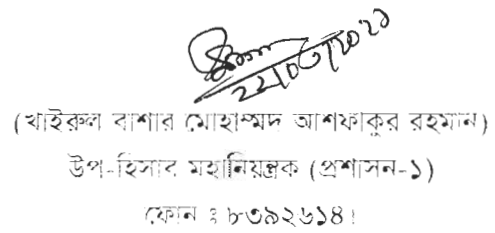 ২২/০৩/২০২১
(খাইরুল বাশার মোহাম্মদ আশফাকুর রহমান)
উপ-হিসাব মহানিয়ন্ত্রক (প্রশাসন-১)
ফোন ঃ ৮৩৯২৬১৪।